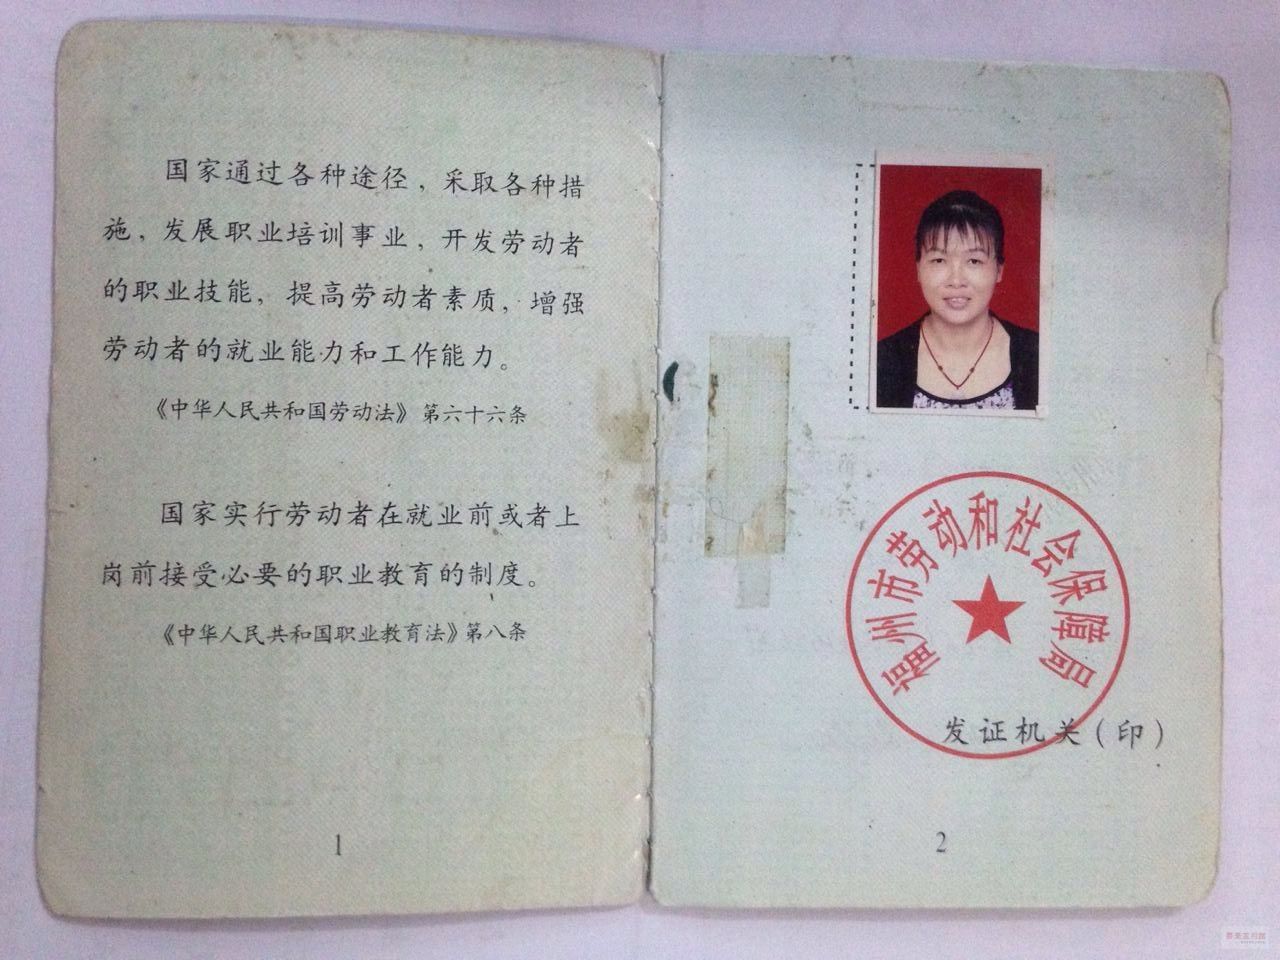 国家通过各种途径，采取各种措
施，发展职业培训事业，开发劳动者
的职业技能，提高劳动者素质，增强
劳动者的就业能力和工作能力。
《中华人民共和国劳动法》第六十六条
国家实行劳动者在就业前或者上
岗前接受必要的职业教育的制度。
《中华人民共和国职业教育法》第八条
1
福州市劳动和社会保障局
发证机关（印）
2